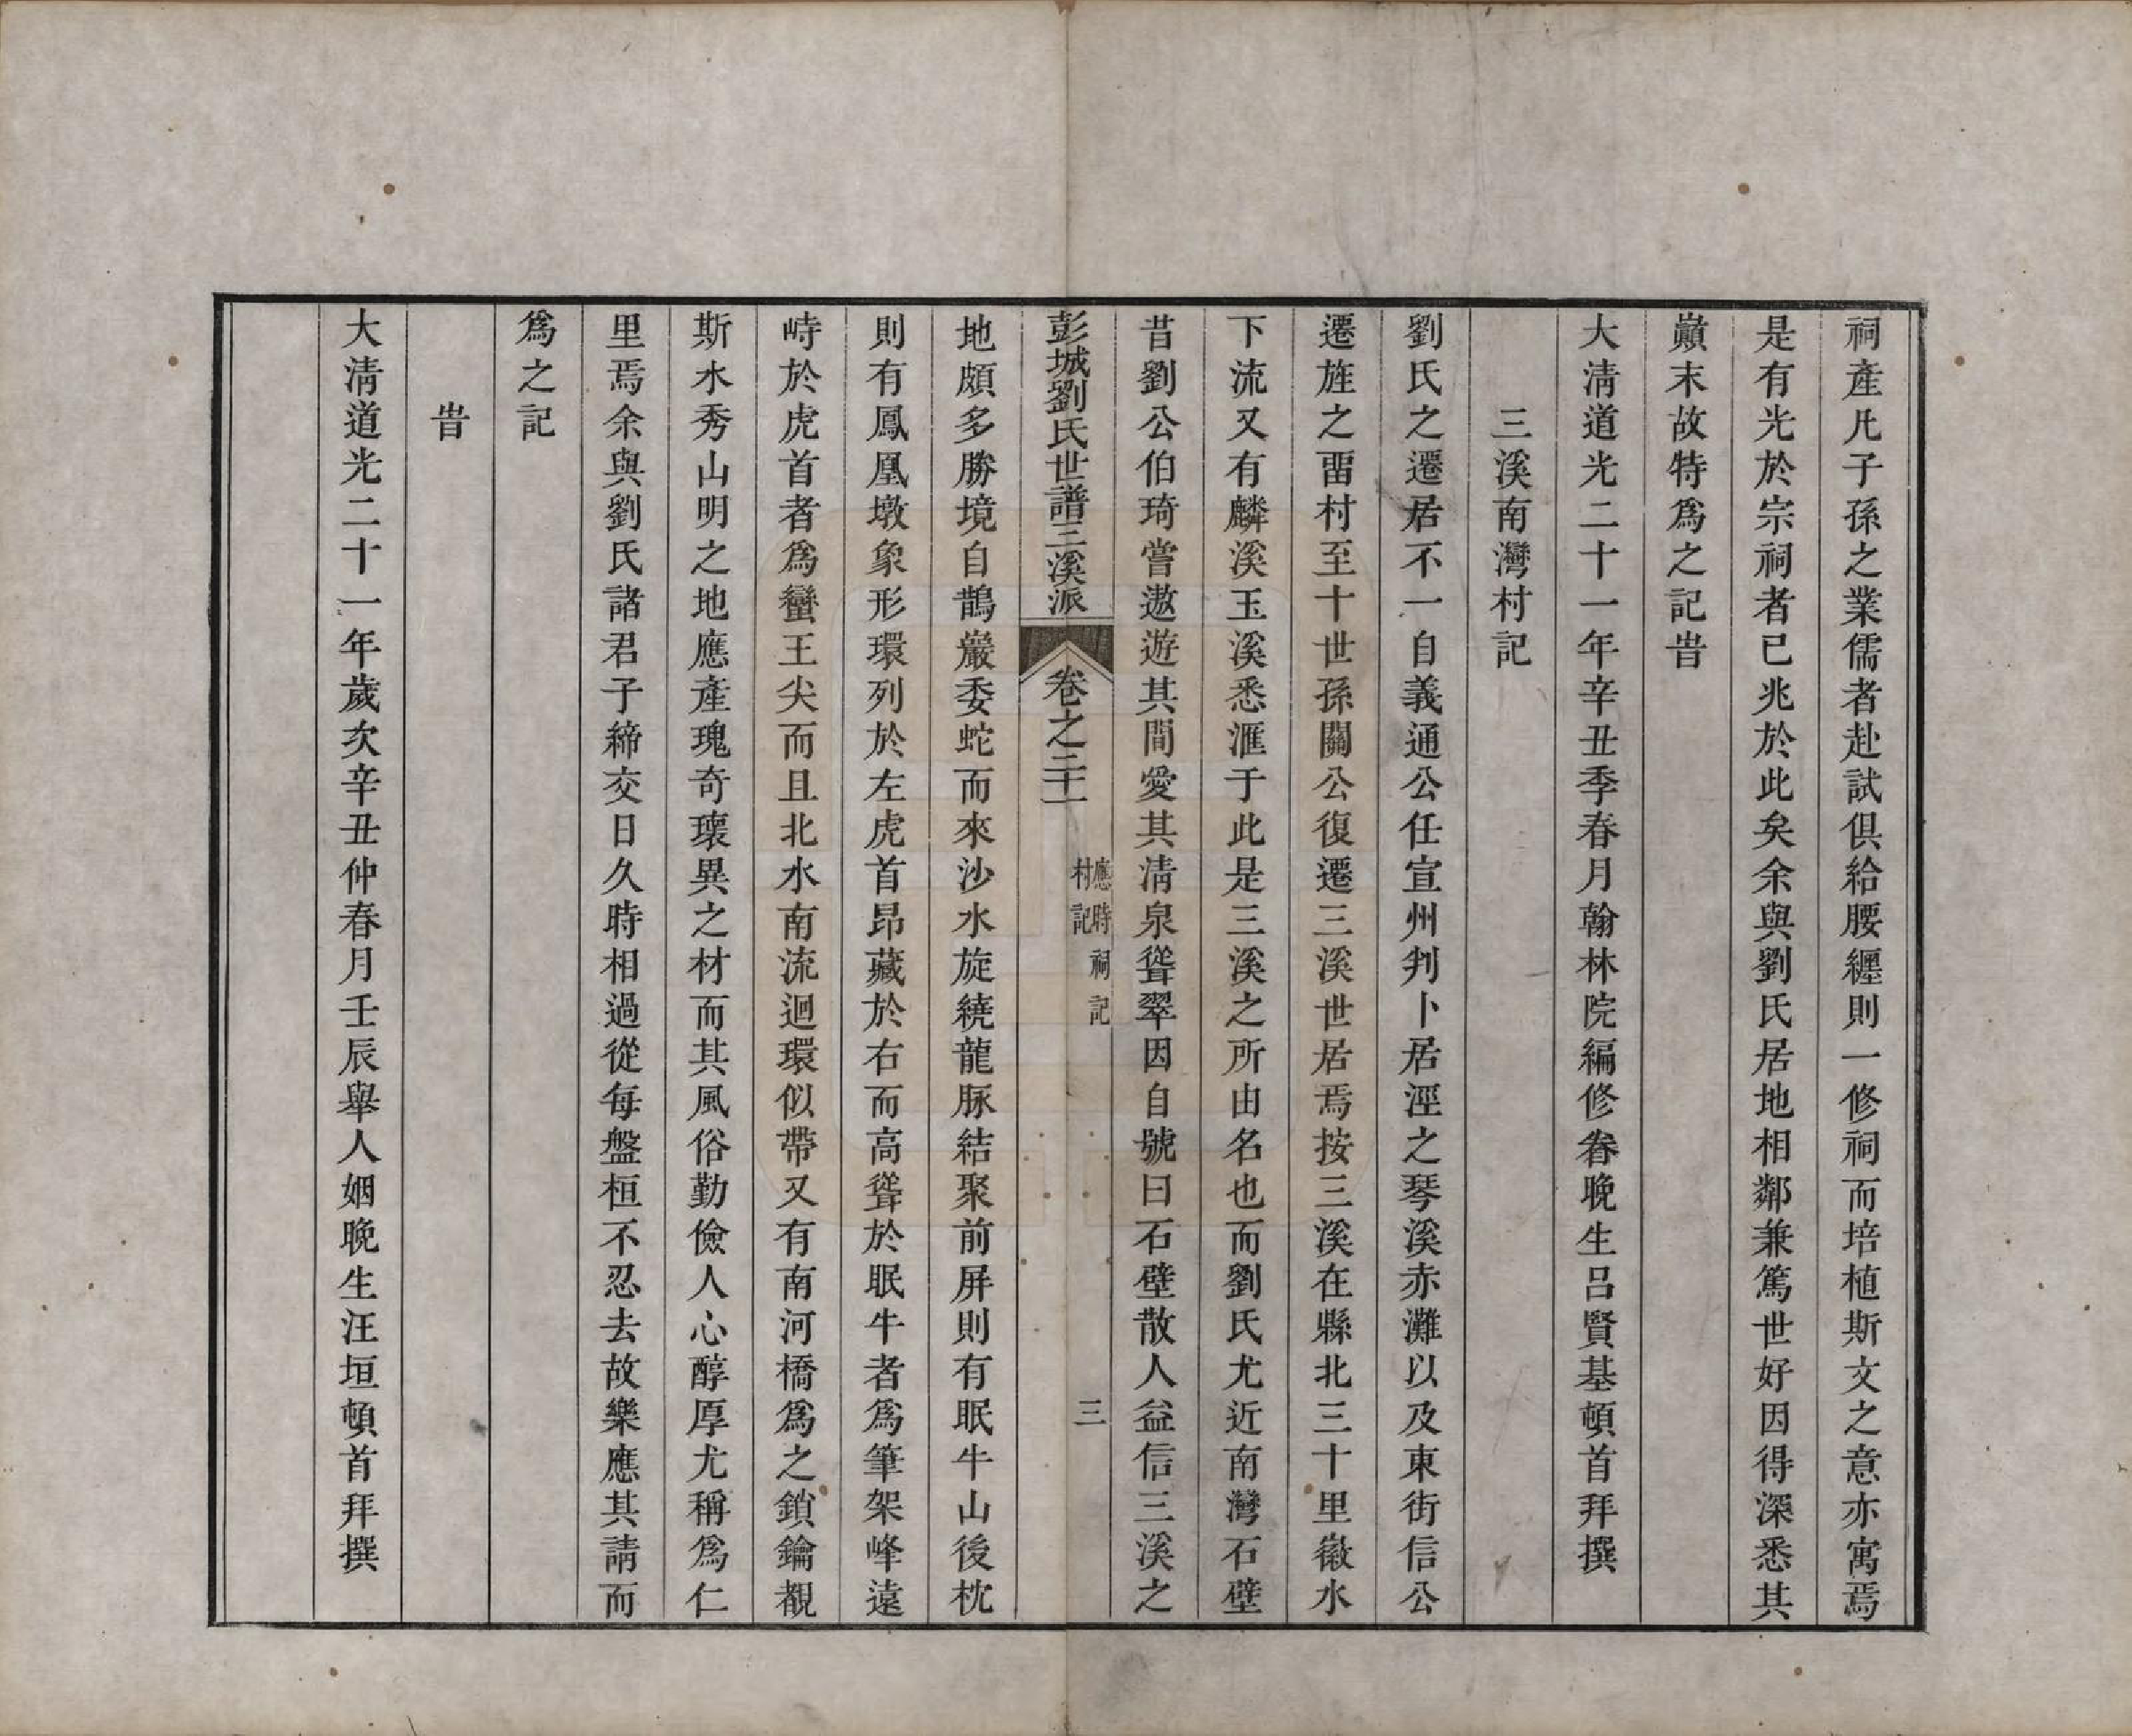 祠產凡子孫之業儒者赴試俱給腰纏則一修祠而培植斯文之意亦寓焉
是有光於宗祠者已兆於此矣余與劉氏居地相鄰兼篤世好因得深悉其
巔末故特爲之記旹
大淸道光二十一年辛丑季春月翰林院編修眷晚生呂賢基頓首拜撰
三溪南灣村記
劉氏之遷居不一自義通公任宣州判卜居涇之琴溪赤灘以及東街信公
遷旌之畱村至十世孫關公復遷三溪世居焉按三溪在縣北三十里徽水
下流又有麟溪玉溪悉滙于此是三溪之所由名也而劉氏尤近南灣石壁
昔劉公伯琦嘗遨遊其間愛其淸泉聳翠因自號曰石壁散人益信三溪之
彭城劉氏世譜三溪派
卷之二十一
應時祠記
村記
三
地頗多勝境自鵲巖委蛇而來沙水旋繞龍脉結聚前屏則有眠牛山後枕
則有鳳凰墩象形環列於左虎首昂藏於右而高聳於眠牛者爲筆架峰遠
峙於虎首者爲蠻王尖而且北水南流迴環似帶又有南河橋爲之鎖鑰觀
斯水秀山明之地應產瑰奇瓌異之材而其風俗勤儉人心醇厚尤稱爲仁
里焉余與劉氏諸君子締交日久時相過從每盤桓不忍去故樂應其請而
爲之記
旹
大淸道光二十一年歲次辛丑仲春月壬辰舉人姻晚生汪垣頓首拜撰